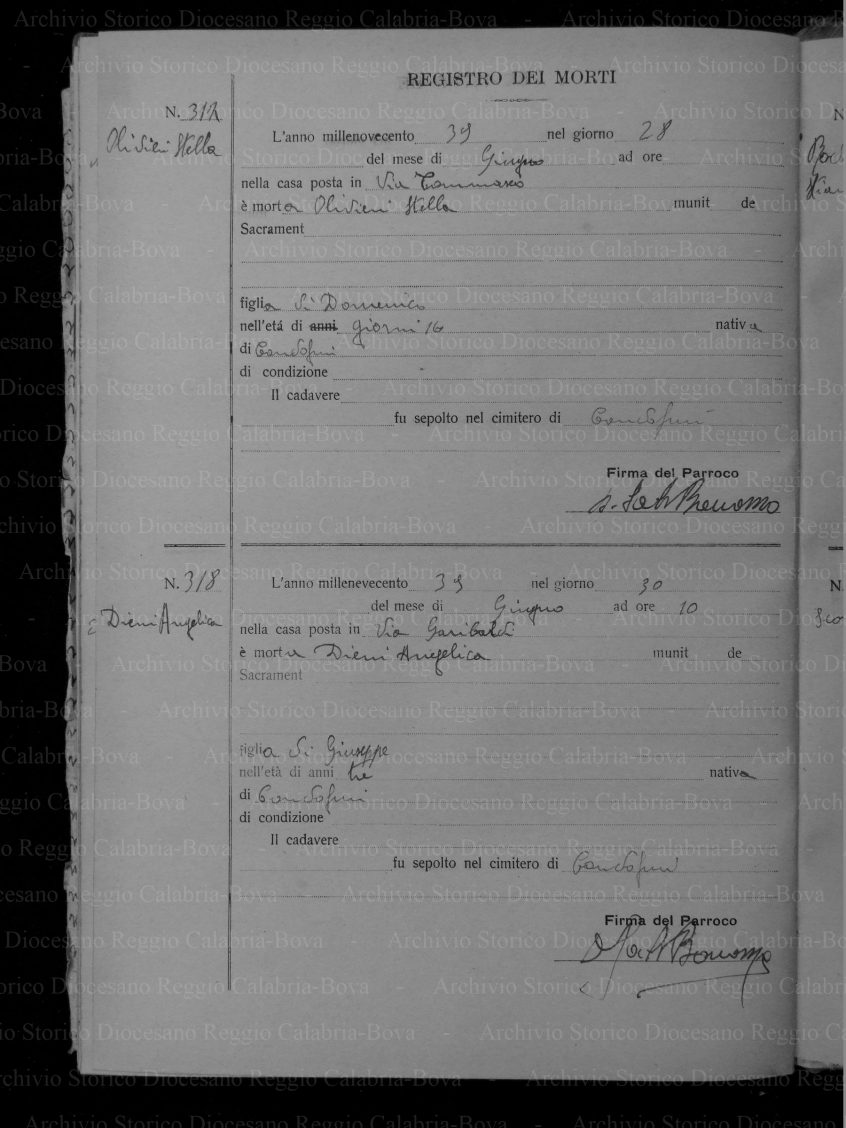 REGISTRO DEI MORTI
N. 317
Olivieri Stella
L'anno millenovecento 39 nel giorno 28
del mese di Giugno ad ore
nella casa posta in Via Tommaseo
è morta Olivieri Stella munit de
Sacrament
figlia di Domenico
nell'etá di anni giorni 14 nativa
di Condofuri
di condizione
Il cadavere
fu sepolto nel cimitero di Condofuri
Firma del Parroco
N. 318
Dieni Angelica
L'anno millenevecento 39 nel giorno 30
del mese di Giugno ad ore 10
nella casa posta in Via Garibaldi
è morta Dieni Angelica munit de
Sacrament
figlia di Giuseppe
nell'età di anni tre nativa
di Condofuri
di condizione
Il cadavere
fu sepolto nel cimitero di Condofuri
Firma del Parroco
Archivio Storico Diocesano Reggio Calabria-Bova